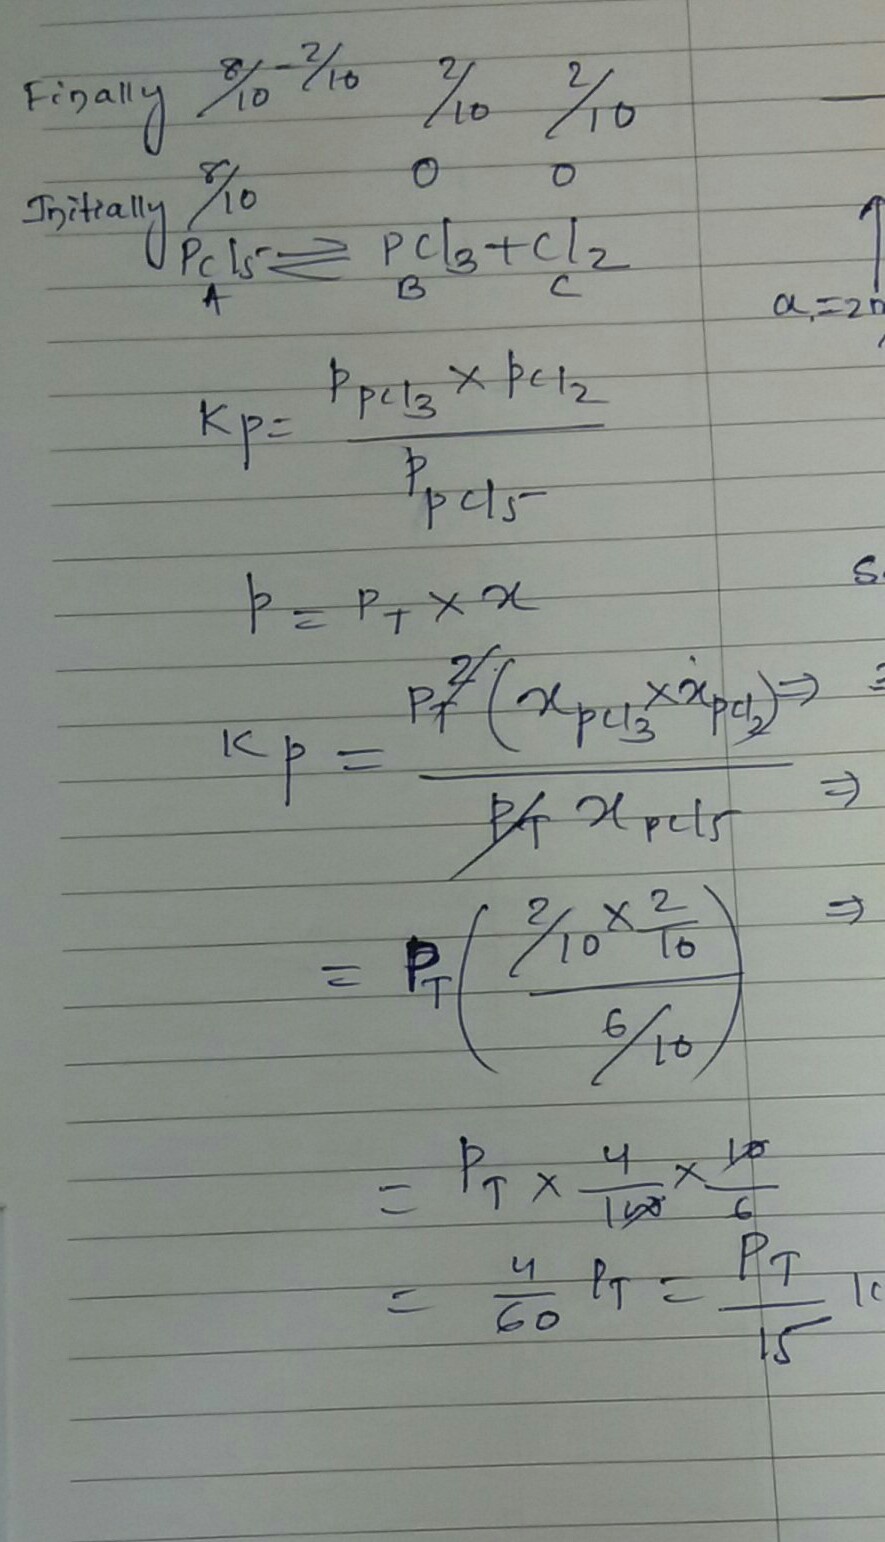 Finally 8/10 - 2/10 2/10 2/10
Initially 8/10 0 0
PCl5 ⇌ PCl3 + Cl2
A B C
a,=2n
Kp = P PCl3 × PCl2
P PCl5
p = PT × x
S
Kp = PT² (x PCl3 × x PCl2) ⇒
PT x PCl5 ⇒
= PT ( 2/10 × 2/10 ⇒
6/10 )
= PT × 4/100 × 10/6
= 4/60 PT = PT/15